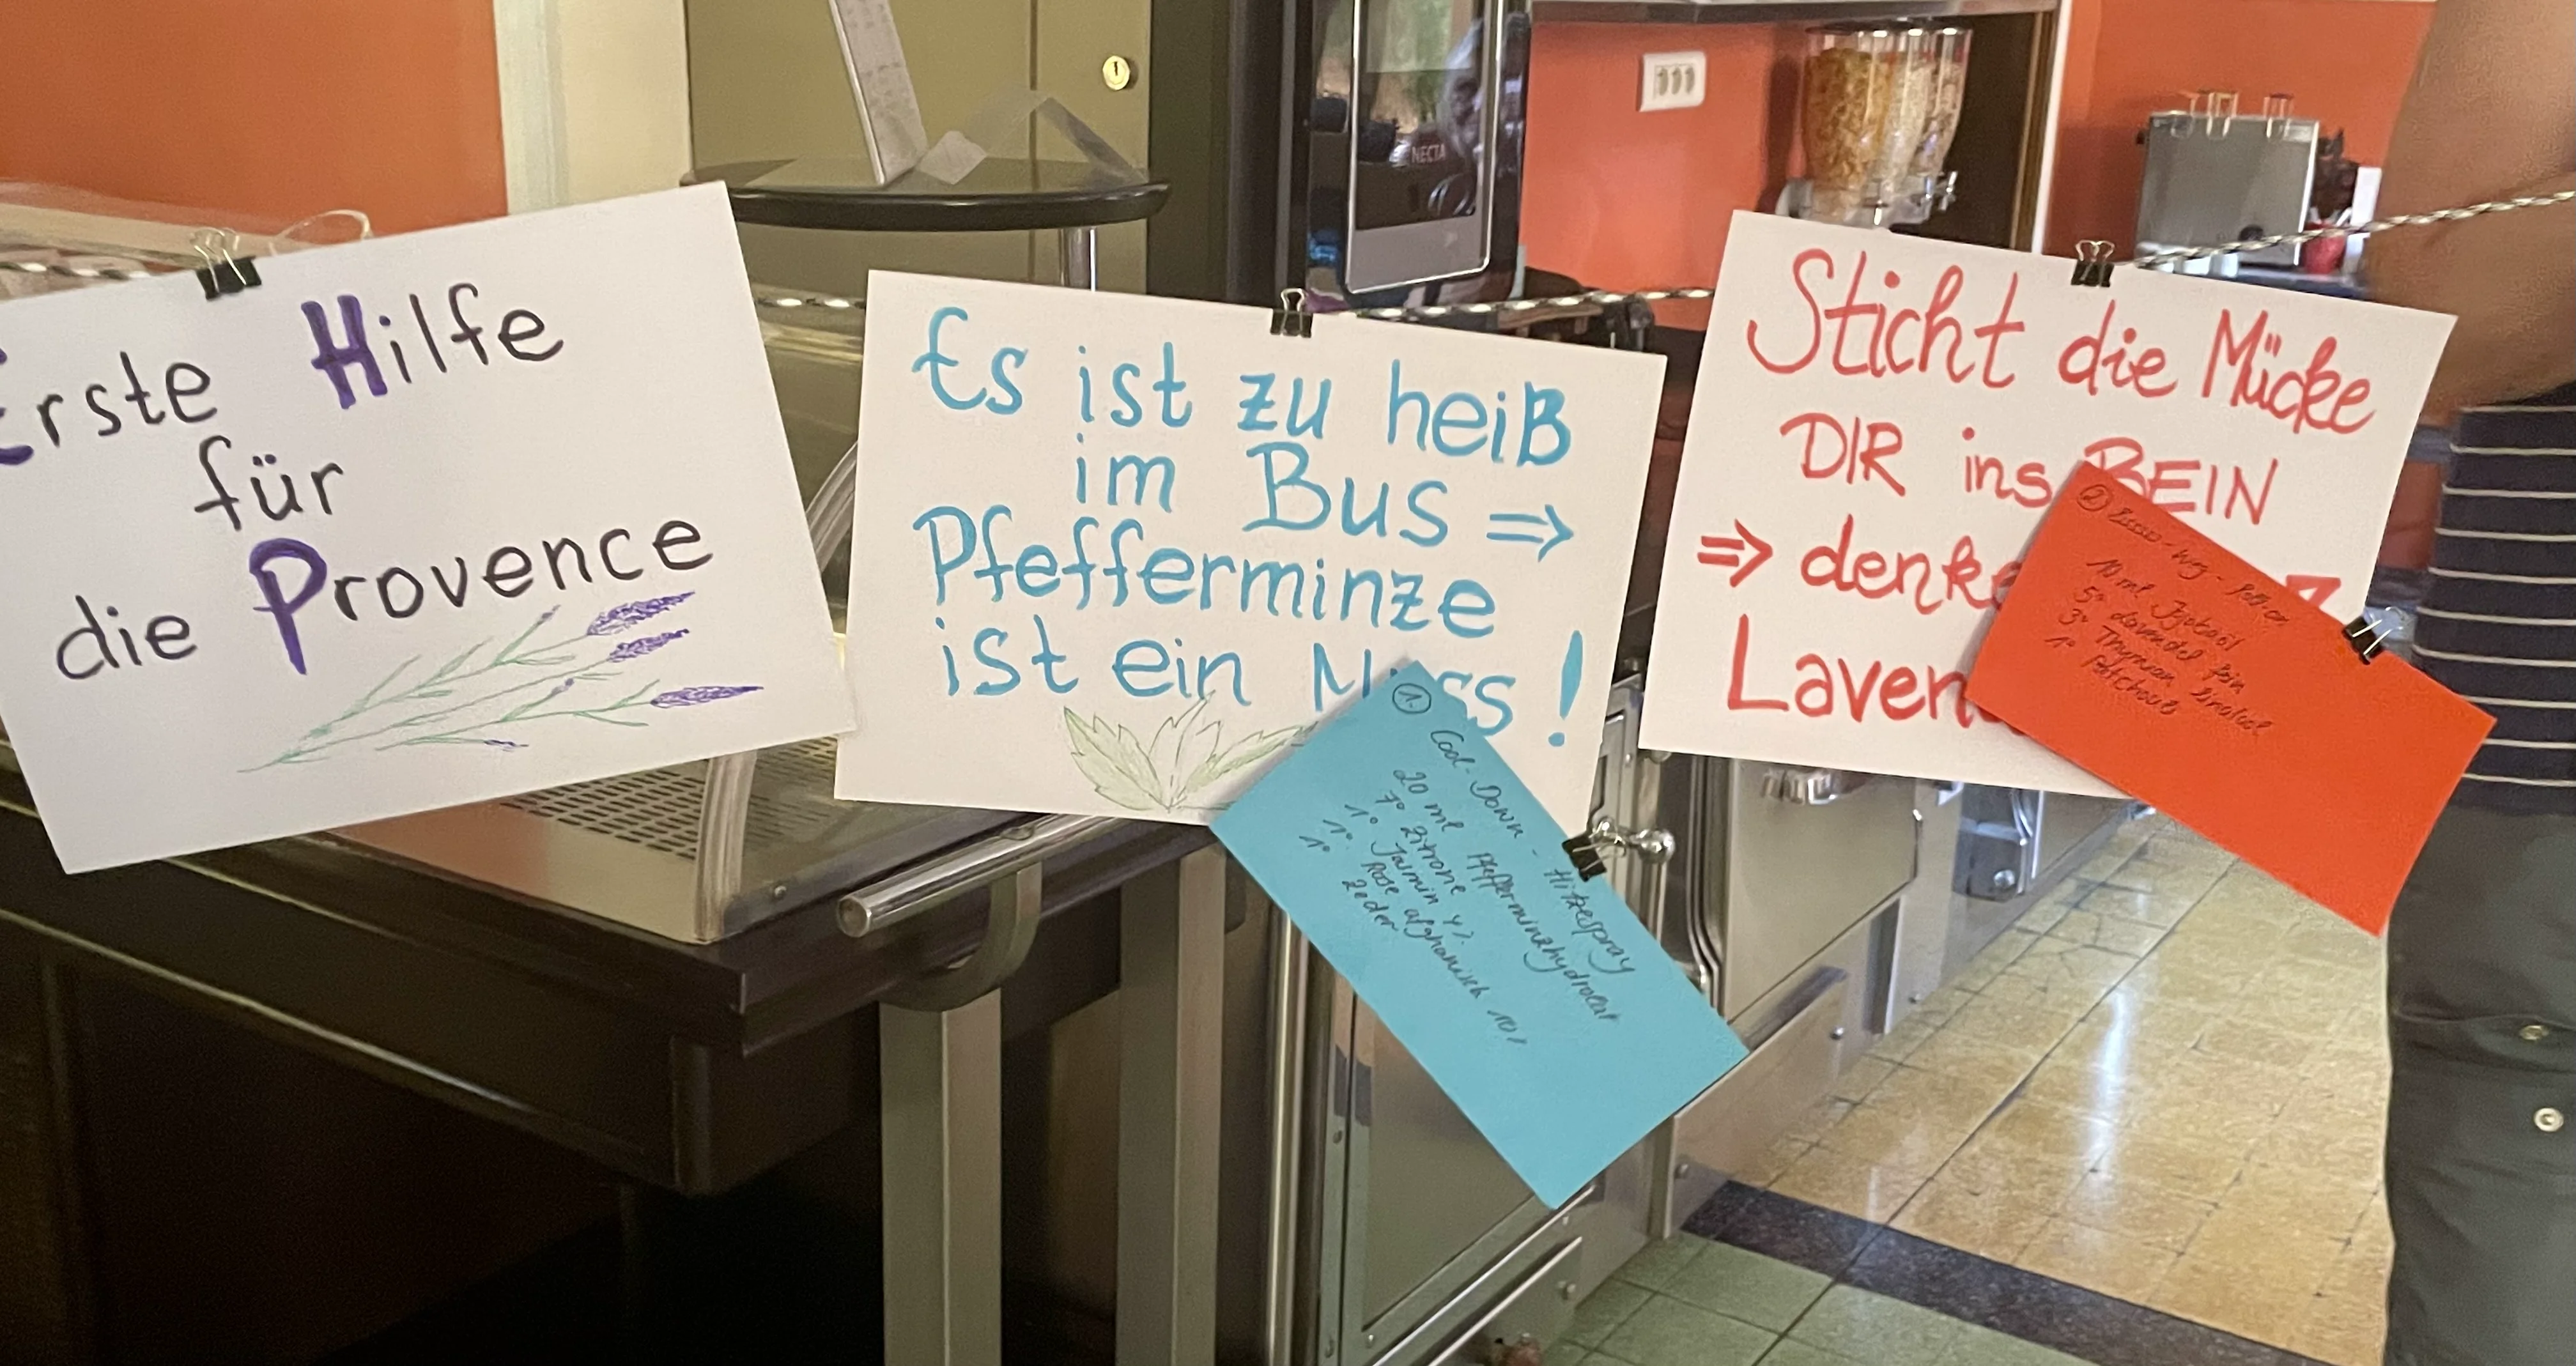 Erste Hilfe
für
die Provence
Es ist zu heiß
im Bus ⇒
Pfefferminze
ist ein Muss!
① Cool-Down-Hitzespray
20 ml Pfefferminzhydrolat
7° Zitrone
1° Jasmin 4%
1° Rose afghanisch 10%
1° Zeder
Sticht die Mücke
DIR ins BEIN
⇒ denke
Laven
② -weg-Roll-on
10 ml Jojobaöl
5° Lavendel fein
3° Thymian linalool
1° Patchouli
NECTA